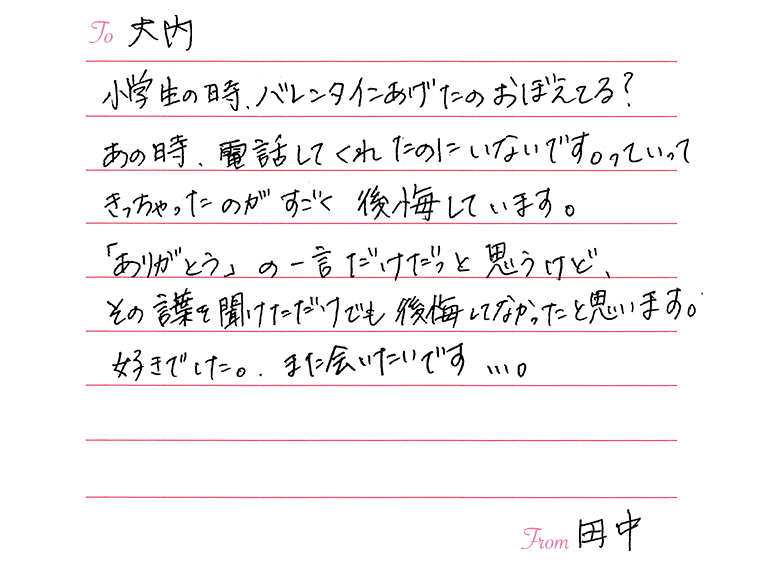 To 大内
小学生の時、バレンタインあげたのおぼえてる?
あの時、電話してくれたのにいないです。っていって
きっちゃったのがすごく後悔しています。
「ありがとう」の一言だけだっと思うけど、
その言葉を聞けただけでも後悔してなかったと思います。
好きでした。. また会いたいです…。
From 田中